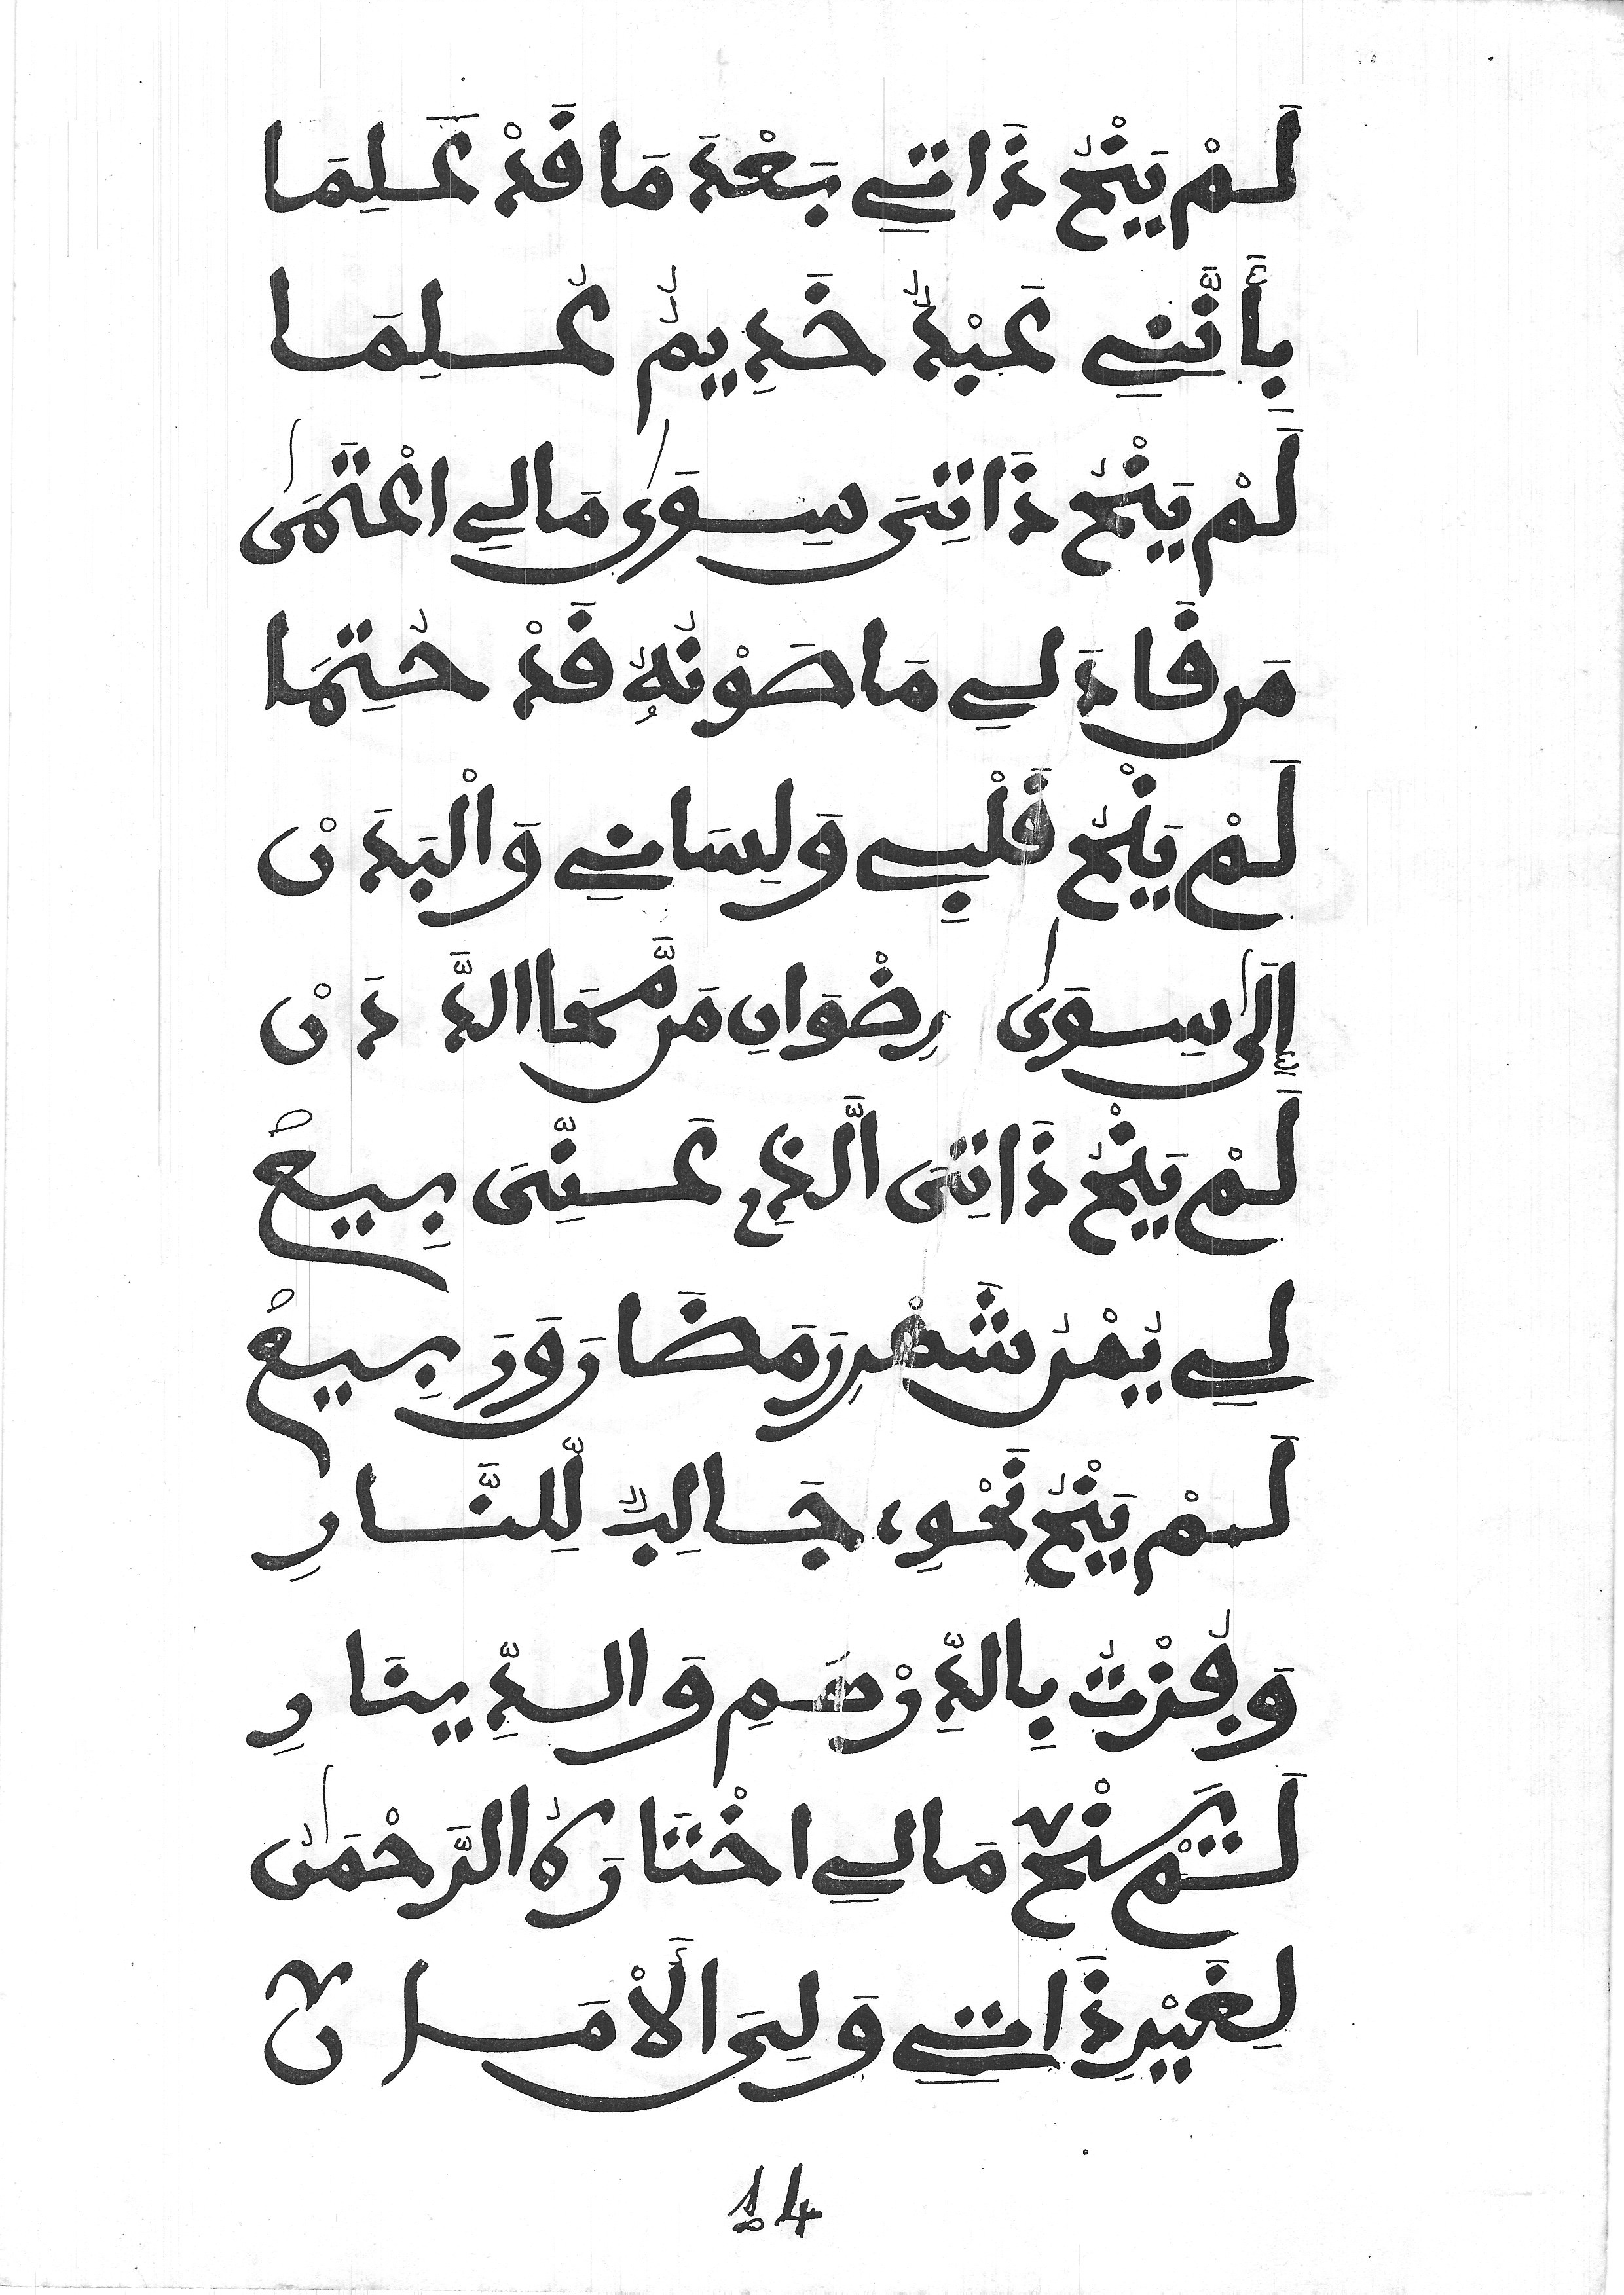 لَمْ يَنْحُ ذَاتِي بَعْدَ مَا قَدْ عَلِمَا
بِأَنَّنِي عَبْدٌ خَدِيمٌ عُلِمَا
لَمْ يَنْحُ ذَاتِى سِوَى مَالِي اعْتَمَى
مَن قَادَ لِي مَا صَوْنُهُ قَدْ حُتِمَا
لَمْ يَنْحُ قَلْبِي وَلِسَانِي وَالْبَدَنْ
إِلَى سِوَى رِضْوَانِ مَن مَّحَا الدَّدَنْ
لَمْ يَنْحُ ذَاتِى الَّذِي عَنِّى بِيعْ
لِي يُمْنُ شَهْرِ رَمَضَانَ وَرَبِيعْ
لَمْ يَنْحُ نَحْوِي جَالِبٌ لِّلنَّارِ
وَفُزْتُ بِالدِّرْهَمِ وَالدِّينَارِ
لَمْ تَنْحُ مَالِي اخْتَارَهُ الرَّحْمَنُ
لِغَيْرِ ذَاتِي وَلِىَ الْأَمَانُ
14